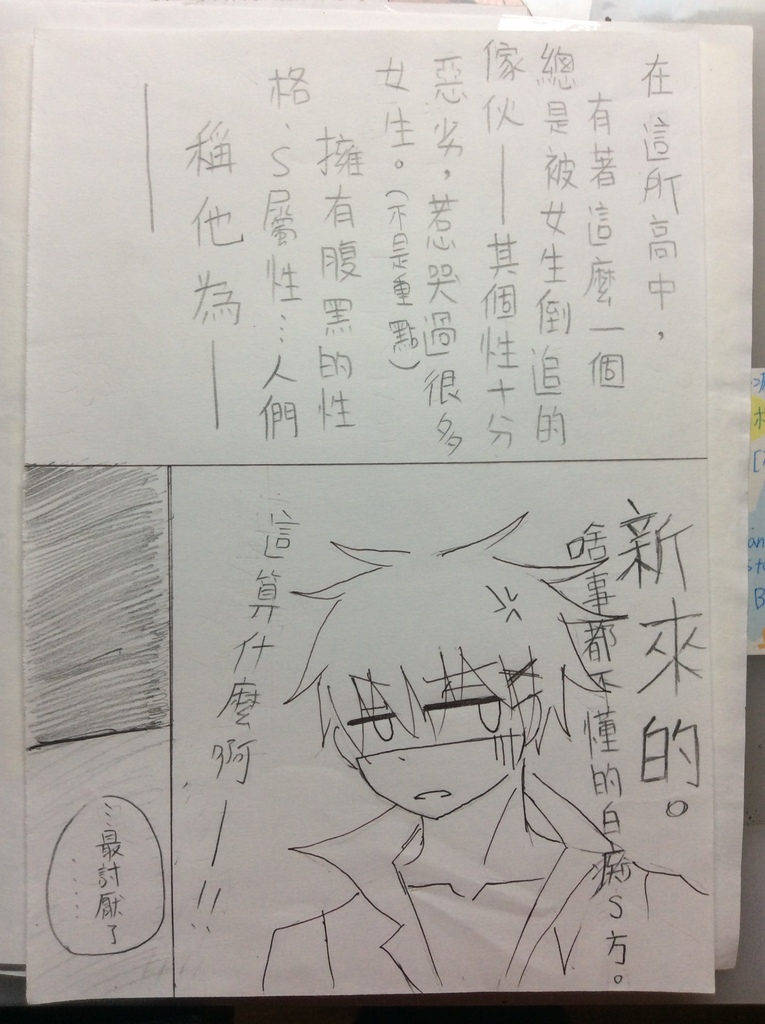 在這所高中，
有著這麼一個
總是被女生倒追的
傢伙——其個性十分
惡劣，惹哭過很多
女生。(不是重點)
擁有腹黑的性
格、S屬性…人們
稱他為——
——
新來的。
啥事都不懂的白痴S方。
這算什麼啊—!!
…最討厭了
……